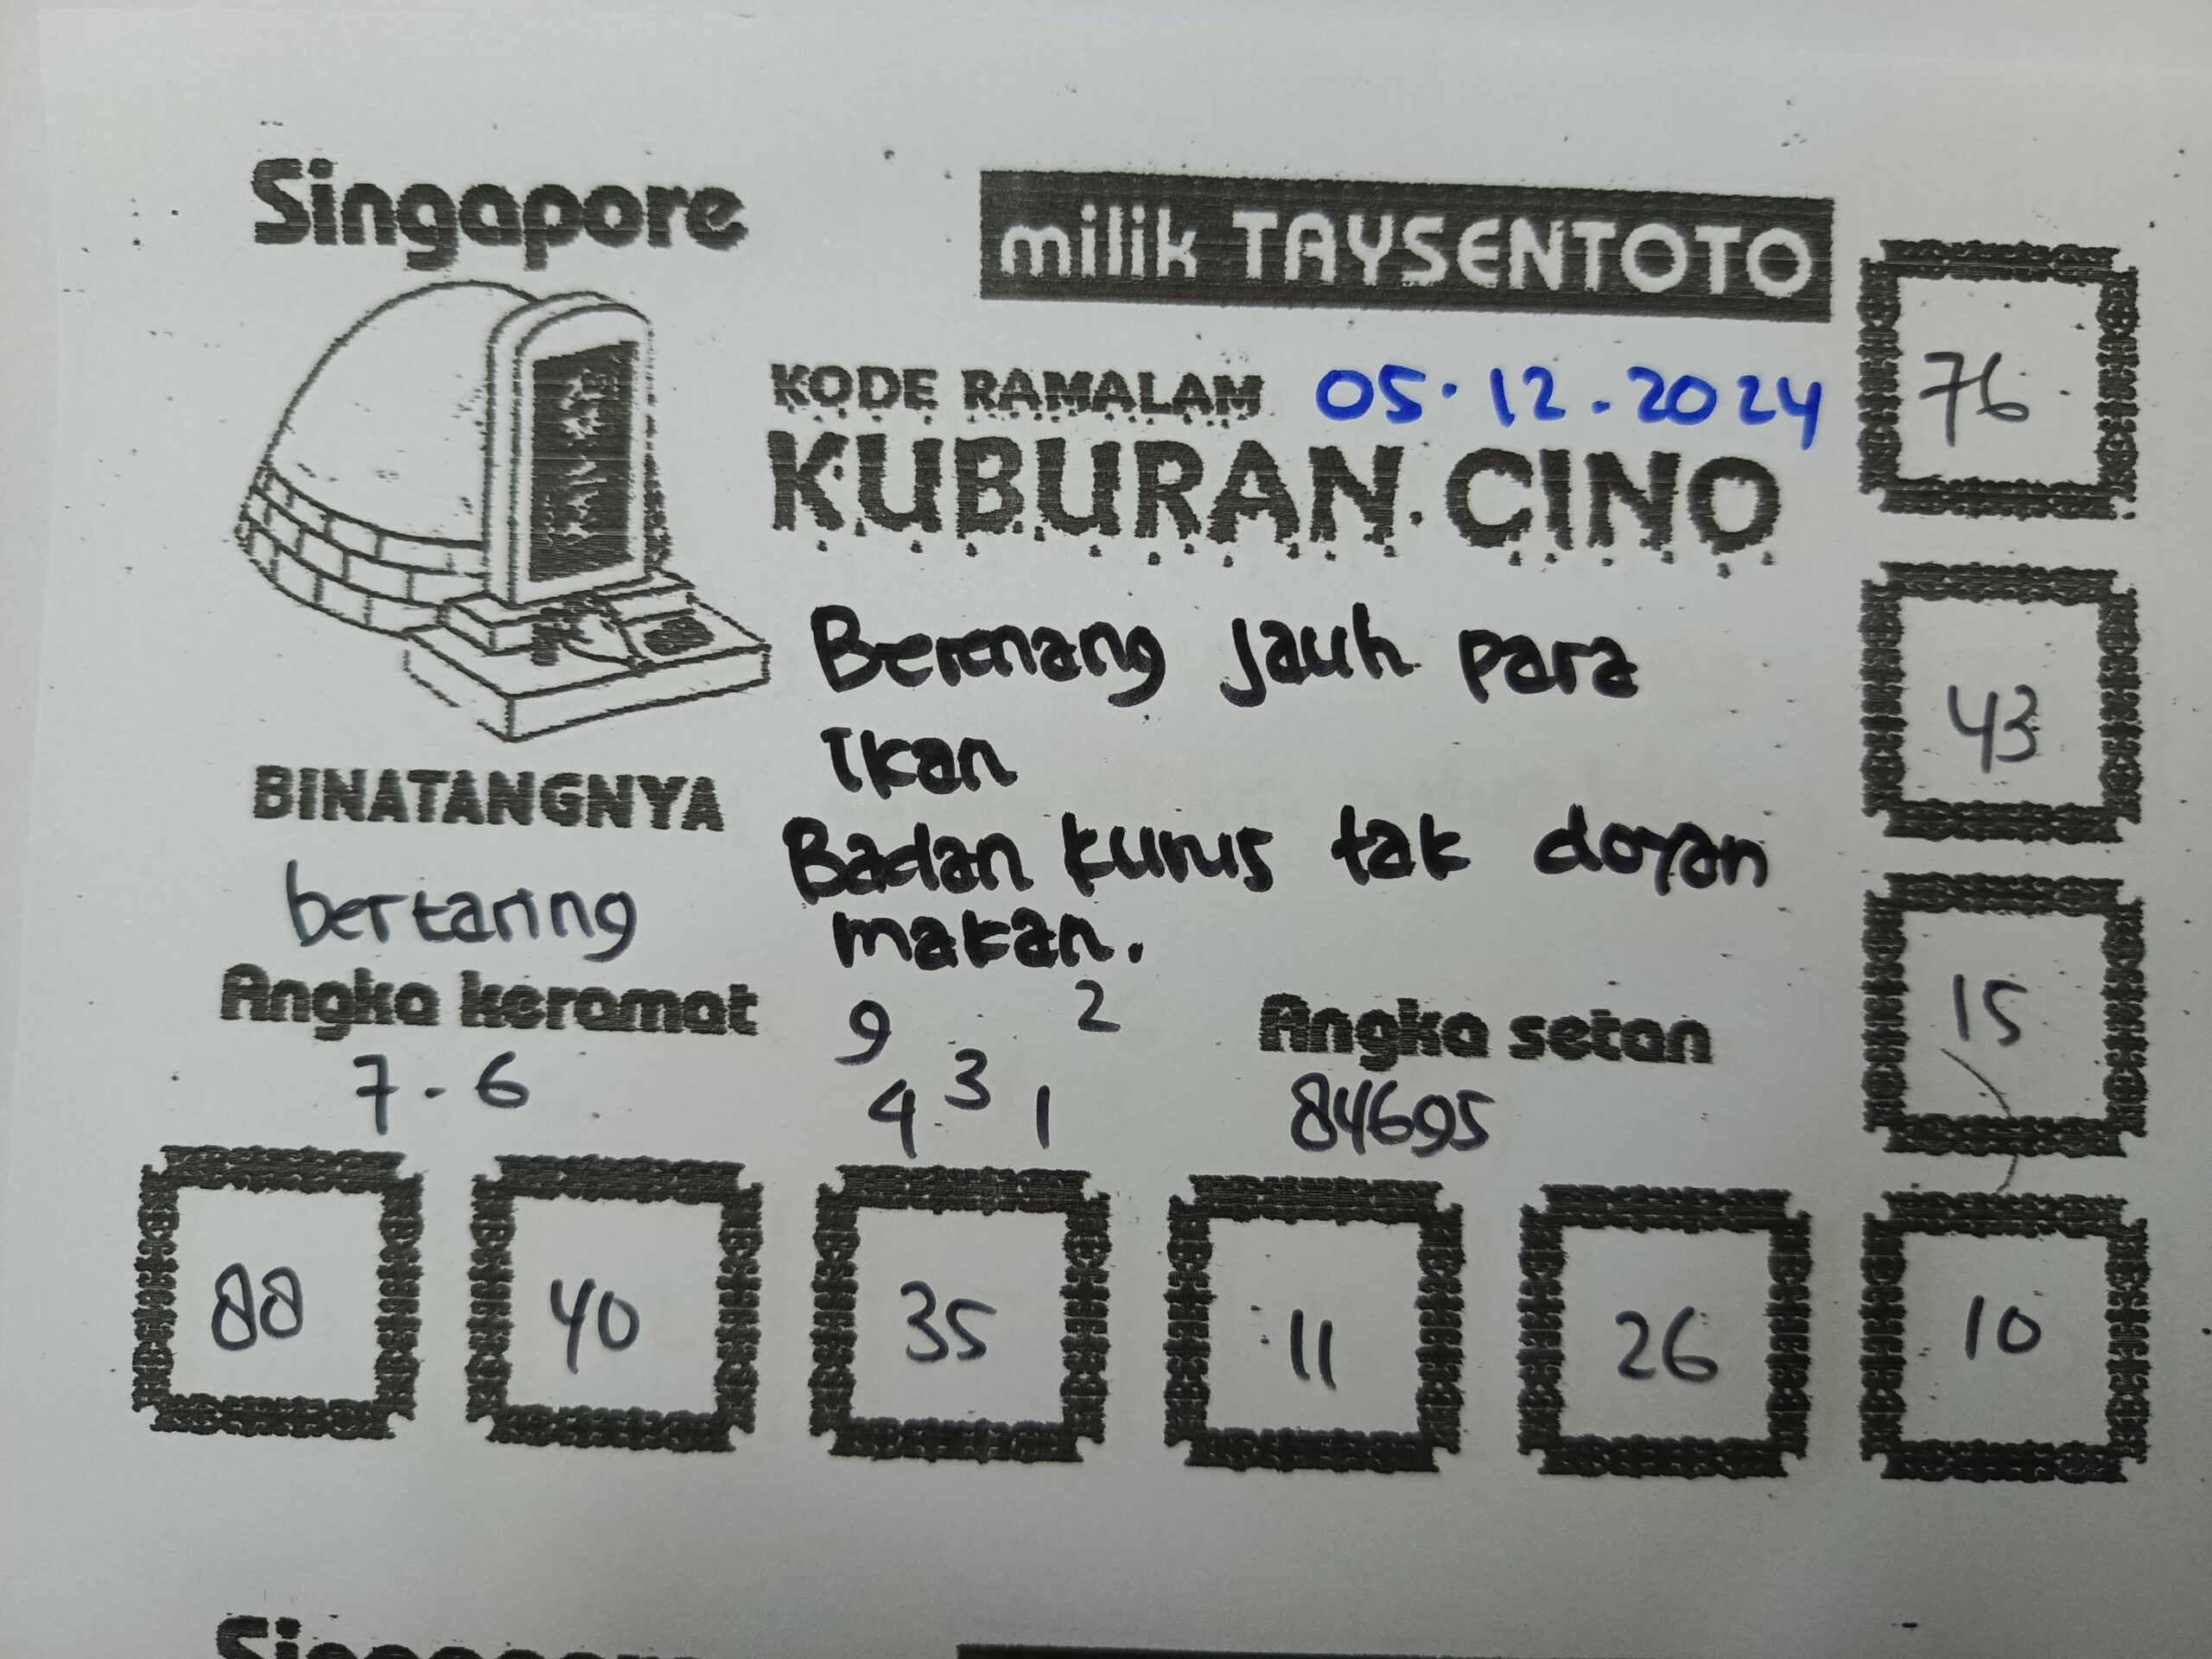 Singapore
milik TAYSENTOTO
KODE RAMALAM 05.12.2024
KUBURAN CINO
76
Berenang jauh para
Ikan
43
BINATANGNYA
bertaring
Badan kurus tak doyan
makan.
15
Angka keramat
7-6
9 2
4 3 1
Angka setan
84695
88 40 35 11 26 10
Singapore